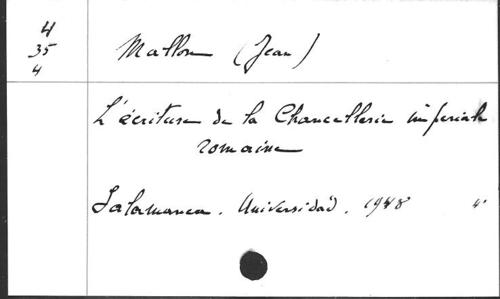 4
35
4
Mallon (Jean)
L'écriture de la Chancellerie impériale
romaine
Salamanca. Universidad. 1948 4º